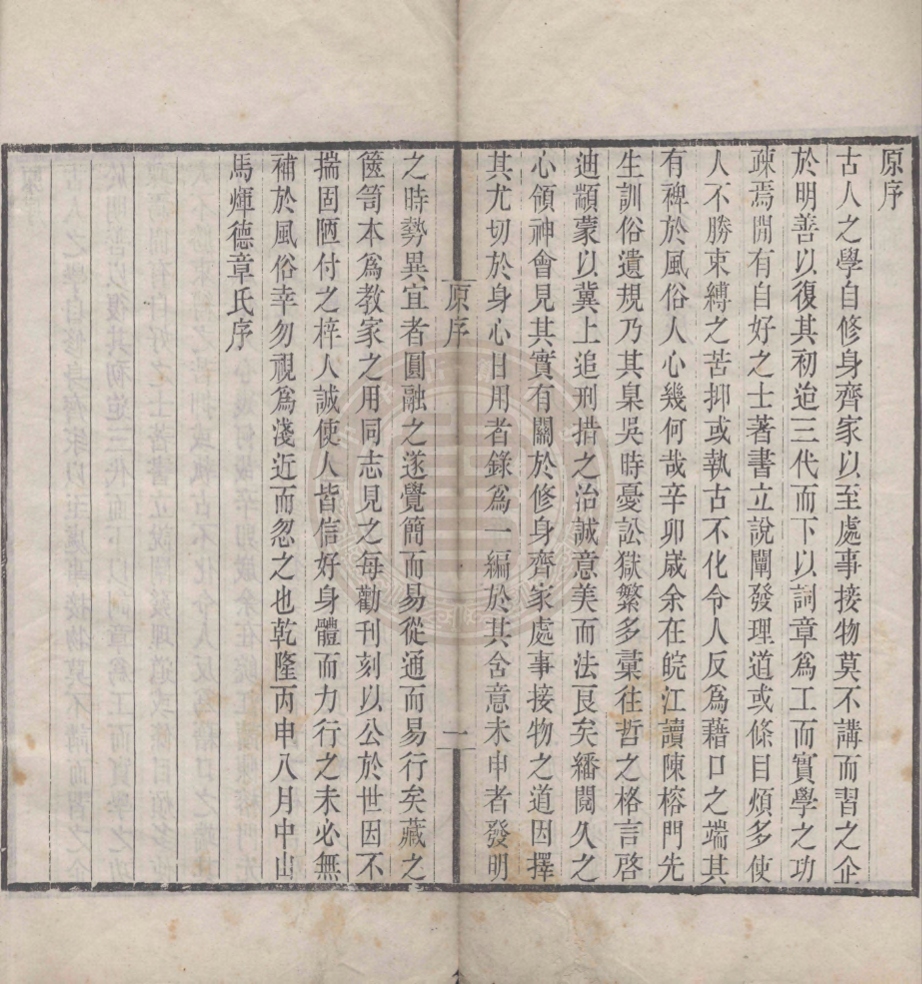 原序
古人之學自修身齊家以至處事接物莫不講而習之企
於明善以復其初迨三代而下以詞章爲工而實學之功
疎焉閒有自好之士著書立說闡發理道或條目煩多使
人不勝束縛之苦抑或執古不化令人反爲藉口之端其
有裨於風俗人心幾何哉辛卯歲余在皖江讀陳榕門先
生訓俗遺規乃其臬吳時憂訟獄繁多彙往哲之格言啓
迪顓蒙以冀上追刑措之治誠意美而法良矣繙閱久之
心領神會見其實有關於修身齊家處事接物之道因擇
其尤切於身心日用者錄爲一編於其含意未申者發明
原序
一
之時勢異宜者圓融之遂覺簡而易從通而易行矣藏之
篋笥本爲教家之用同志見之每勸刊刻以公於世因不
揣固陋付之梓人誠使人皆信好身體而力行之未必無
補於風俗幸勿視爲淺近而忽之也乾隆丙申八月中山
馬煇德章氏序